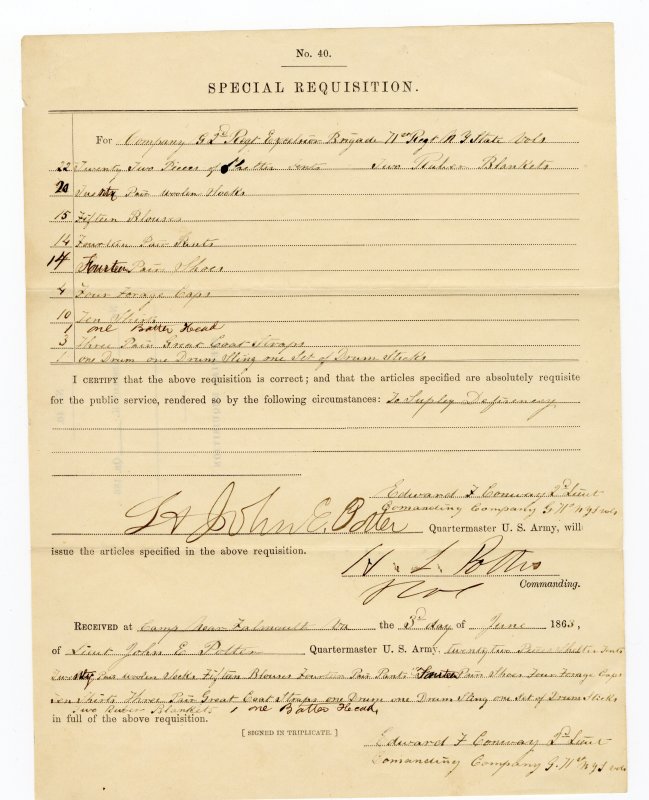 No. 40.
SPECIAL REQUISITION.
For Company G 2d Regt Excelsior Brigade 71st Regt N Y State Vols
22 Twenty Two Pieces of Shelter tents Two Ruber Blankets
20 Twenty Pair woolen Socks
15 Fifteen Blouses
14 Fourteen Pair Pants
14 Fourteen Pair Shoes
4 Four Forage Caps
10 Ten Shirts
1 one Batter Head
3 Three Pair Great Coat Straps
1 one Drum one Drum Sling one Set of Drum Sticks
I CERTIFY that the above requisition is correct; and that the articles specified are absolutely requisite
for the public service, rendered so by the following circumstances: To Supley Defirency
Edward F Conway 2d Lieut
Comanding Company G. 71st N Y S vols
Lt John E. Potter Quartermaster U. S. Army, will
issue the articles specified in the above requisition.
H. L. Potter
Commanding.
RECEIVED at Camp Near Falmouth Va the 3d day of June 1863,
of Lieut John E Potter Quartermaster U. S. Army, twenty two Pieces Shelter Tents
Twenty Pair woolen Socks Fifteen Blouses Fourteen Pair Pants Fourteen Pair Shoes Four Forage Caps
ten Shirts Three Pair Great Coat Straps one Drum one Drum Sling one Set of Drum Sticks
Two Ruber Blankets 1 one Batter Head,
in full of the above requisition.
[ SIGNED IN TRIPLICATE. ]
Edward F Conway 2d Lieut
Comanding Company G. 71st N Y S vols